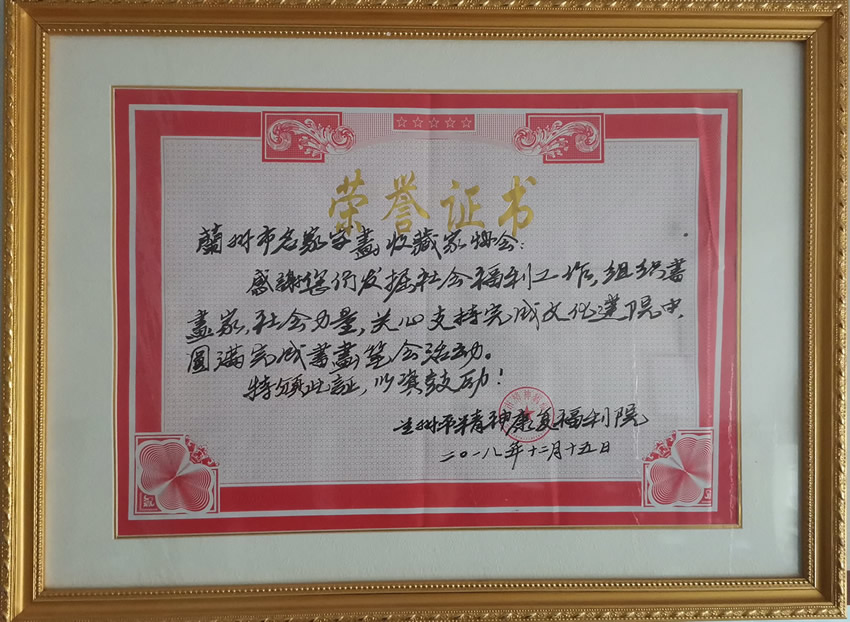 荣誉证书
蘭州市名家字畫收藏家协会：
感謝您们发掘社会福利工作，组织書
畫家，社会力量，关心支持完成文化建院中，
圆满完成書畫笔会活动。
特颁此証，以资鼓励！
兰州市精神康复福利院
二〇一八年十二月十五日